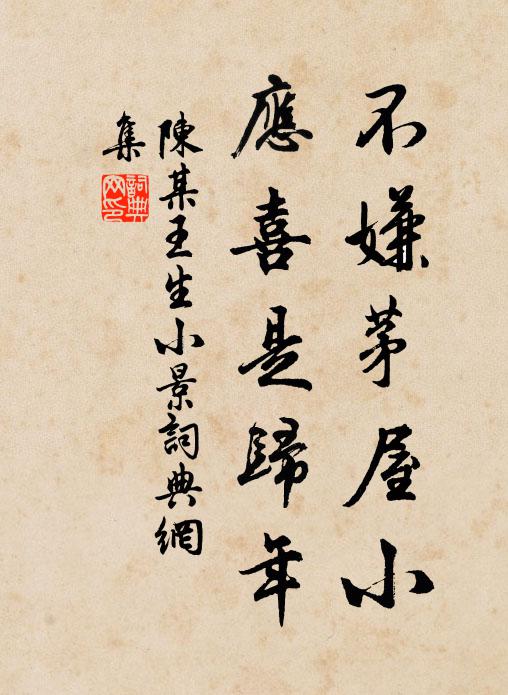 不嫌茅屋小
應喜是歸年
陳某王生小景詞典網
集
詞典
网印